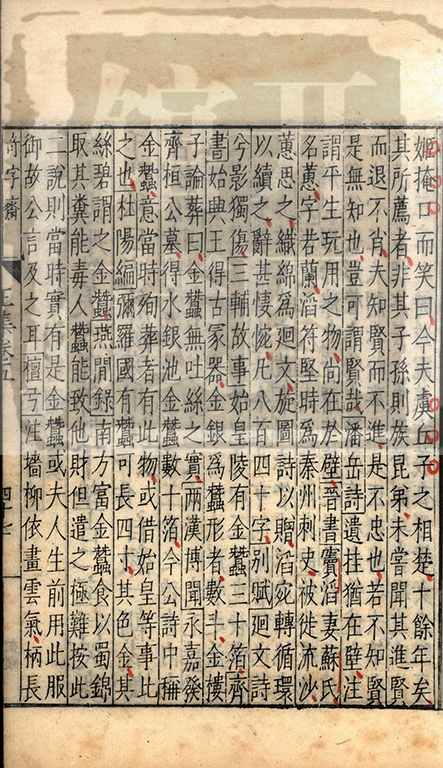 姬掩口而笑曰今夫虞丘子之相楚十餘年矣
其所薦者非其子孫則族昆弟未嘗聞其進賢
而退不肖夫知賢而不進是不忠也若不知賢
是無知也豈可謂賢哉潘岳詩遺挂猶在壁注
謂平生玩用之物尚在於壁晉書竇滔妻蘇氏
名蕙字若蘭滔符堅時爲秦州刺史被徙流沙
蕙思之織綿爲廻文旋圖詩以贈滔宛轉循環
以續之辭甚悽惋凡八百四十字别賦廻文詩
兮影獨傷三輔故事始皇陵有金蠶三十箔齊
書始興王得古冢器金銀爲蠶形者數斗金樓
子論葬曰金蠶無吐絲之實兩漢博聞永嘉發
齊桓公墓得水銀池金蠶數十箔今公詩中稱
金蠶意當時殉葬者有此物或借始皇等事比
之也杜陽編彌羅國有蠶可長四寸其色金其
絲碧謂之金蠶燕閒錄南方富金蠶食以蜀錦
取其糞能毒人蠶能致他財但遣之極難按此
二說則當時實有是金蠶或夫人生前用此服
御故公言及之耳檀弓注牆柳依畫雲氣柄長
奇字齋
四十七